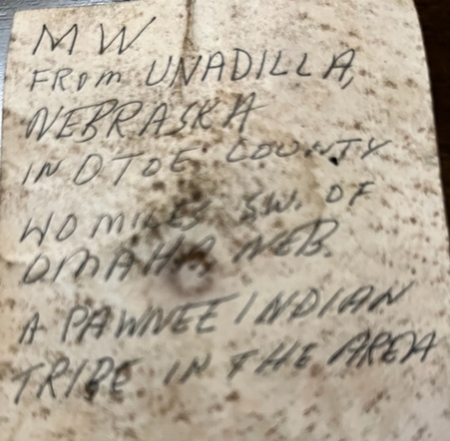 MW
FROM UNADILLA,
NEBRASKA
IN OTOE COUNTY
40 MILES SW. OF
OMAHA, NEB.
A PAWNEE INDIAN
TRIBE IN THE AREA